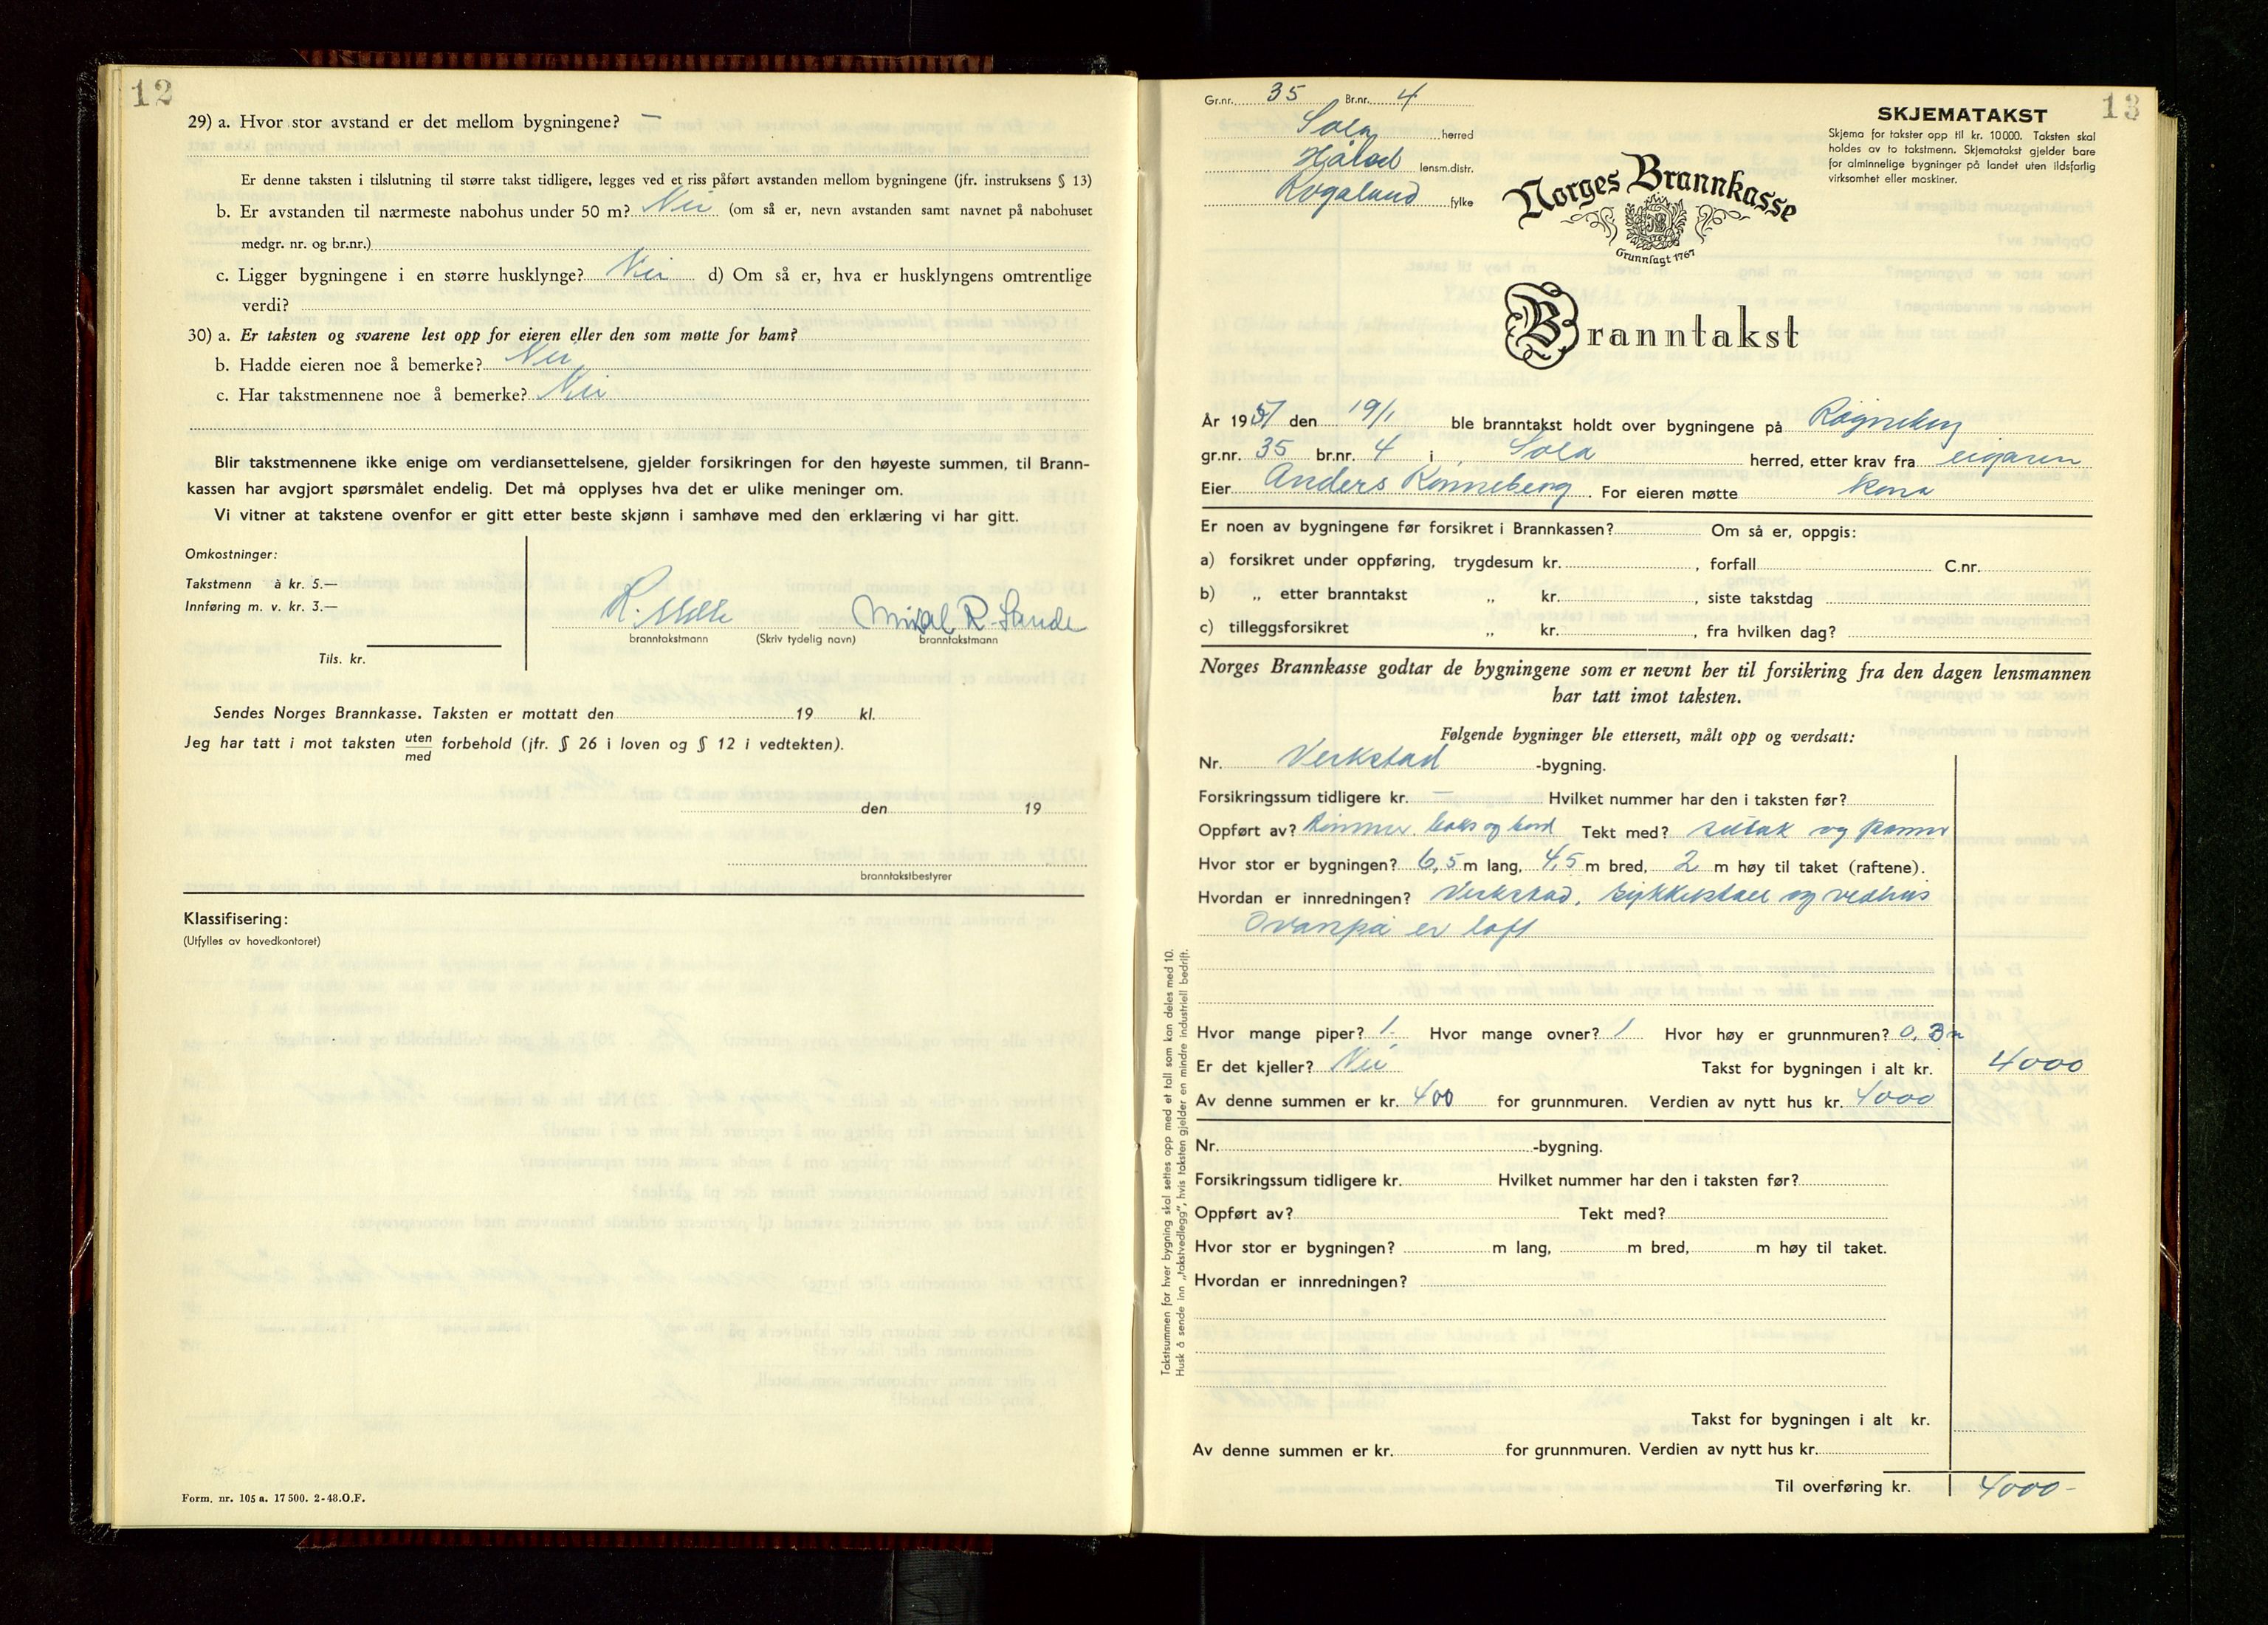 12
29) a. Hvor stor avstand er det mellom bygningene? —
Er denne taksten i tilslutning til større takst tidligere, legges ved et riss påført avstanden mellom bygningene (jfr. instruksens § 13)
b. Er avstanden til nærmeste nabohus under 50 m? Nei (om så er, nevn avstanden samt navnet på nabohuset
medgr. nr. og br.nr.)
c. Ligger bygningene i en større husklynge? Nei d) Om så er, hva er husklyngens omtrentlige
verdi?
30) a. Er taksten og svarene lest opp for eieren eller den som møtte for ham?
b. Hadde eieren noe å bemerke? Nei
c. Har takstmennene noe å bemerke? Nei
Blir takstmennene ikke enige om verdiansettelsene, gjelder forsikringen for den høyeste summen, til Brann-
kassen har avgjort spørsmålet endelig. Det må opplyses hva det er ulike meninger om.
Vi vitner at takstene ovenfor er gitt etter beste skjønn i samhøve med den erklæring vi har gitt.
Omkostninger:
Takstmenn à kr. 5.—
Innføring m. v. kr. 3.—
Tils. kr.
R. Sande
branntakstmann (Skriv tydelig navn) branntakstmann
Sendes Norges Brannkasse. Taksten er mottatt den 19 kl.
Jeg har tatt i mot taksten uten forbehold (jfr. § 26 i loven og § 12 i vedtekten).
med
den 19
branntakstbestyrer
Klassifisering:
(Utfylles av hovedkontoret)
Form. nr. 105 a. 17 500. 2-48.O.F.
13
Gr.nr. 35 Br.nr. 4
Sola herred
Håland lensm.distr.
Rogaland fylke
SKJEMATAKST
Skjema for takster opp til kr. 10 000. Taksten skal
holdes av to takstmenn. Skjematakst gjelder bare
for alminnelige bygninger på landet uten ildsfarlig
virksomhet eller maskiner.
Norges Brannkasse
Grunnlagt 1767
Branntakst
År 1951 den 19/1 ble branntakst holdt over bygningene på
gr.nr. 35 br.nr. 4 i Sola herred, etter krav fra eigaren
Eier Anders Rønneberg. For eieren møtte kona
Er noen av bygningene før forsikret i Brannkassen? Om så er, oppgis:
a) forsikret under oppføring, trygdesum kr. , forfall C.nr.
b) „ etter branntakst „ kr. , siste takstdag
c) tilleggsforsikret „ kr. , fra hvilken dag?
Norges Brannkasse godtar de bygningene som er nevnt her til forsikring fra den dagen lensmannen
har tatt imot taksten.
Følgende bygninger ble ettersett, målt opp og verdsatt:
Nr. Verkstad -bygning.
Forsikringssum tidligere kr. — Hvilket nummer har den i taksten før?
Oppført av? og bord Tekt med? sutak og panner
Hvor stor er bygningen? 6,5 m lang, 4,5 m bred, 2 m høy til taket (raftene).
Hvordan er innredningen? Verkstad, sykkelstall og vedhus
Ovanpå er loft
Hvor mange piper? 1 Hvor mange ovner? 1 Hvor høy er grunnmuren? 0,3 m
Er det kjeller? Nei Takst for bygningen i alt kr. 4000
Av denne summen er kr. 400 for grunnmuren. Verdien av nytt hus kr. 4000
Nr. -bygning.
Forsikringssum tidligere kr. Hvilket nummer har den i taksten før?
Oppført av? Tekt med?
Hvor stor er bygningen? m lang, m bred, m høy til taket.
Hvordan er innredningen?
Takst for bygningen i alt kr.
Av denne summen er kr. for grunnmuren. Verdien av nytt hus kr.
Til overføring kr. 4000-
Takstsummen for hver bygning skal settes opp med et tall som kan deles med 10.
Husk å sende inn „takstvedlegg", hvis taksten gjelder en mindre industriell bedrift.